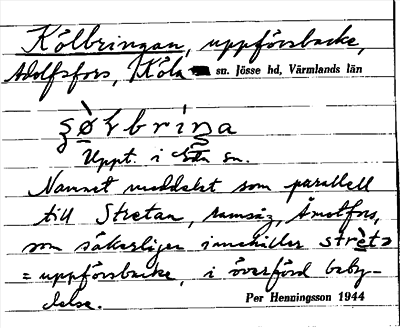 Kölbringan, uppförsbacke,
Adolfsfors, Köla sn. Jösse hd, Värmlands län
Uppt. i Eda sn.
Namnet meddelat som parallell
till Stretan, ramsäg, Åmotfors,
som säkerligen innehåller streta
= uppförsbacke, i överförd bety-
delse.
Per Henningsson 1944